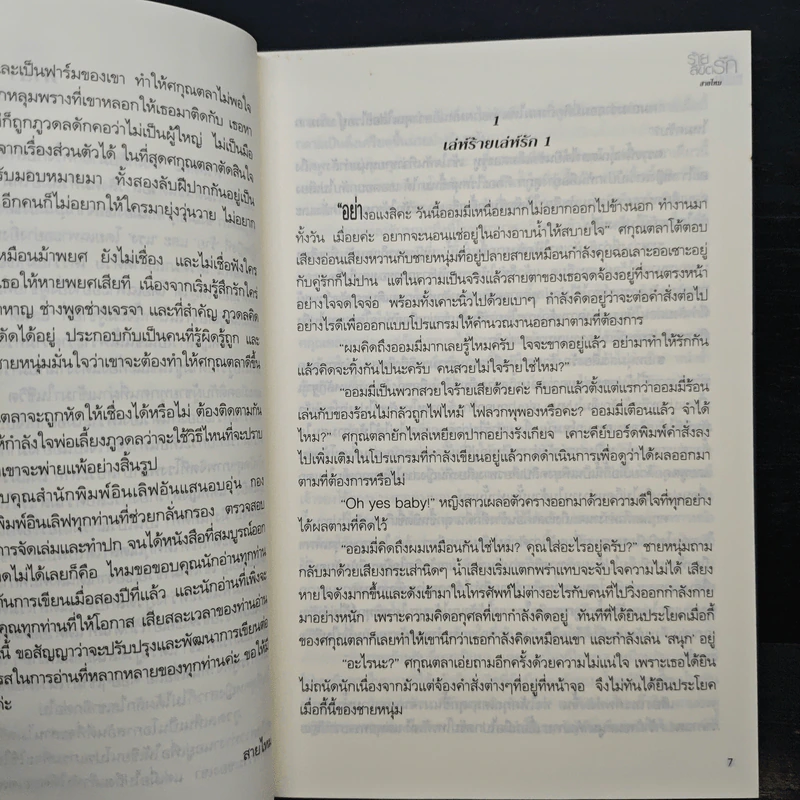 ละเป็นฟาร์มของเขา ทำให้ศกุณตลาไม่พอใจ
กหลุมพรางที่เขาหลอกให้เธอมาติดกับ เธอหา
ก็ถูกภูวดลดักคอว่าไม่เป็นผู้ใหญ่ ไม่เป็นมือ
จากเรื่องส่วนตัวได้ ในที่สุดศกุณตลาตัดสินใจ
รับมอบหมายมา ทั้งสองลับฝีปากกันอยู่เป็น
อีกคนก็ไม่อยากให้ใครมายุ่งวุ่นวาย ไม่อยาก
หมือนม้าพยศ ยังไม่เชื่อง และไม่เชื่อฟังใคร
เธอให้หายพยศเสียที เนื่องจากเริ่มรู้สึกรักใคร่
าหาญ ช่างพูดช่างเจรจา และที่สำคัญ ภูวดลคิด
ดัดได้อยู่ ประกอบกับเป็นคนที่รู้ผิดรู้ถูก และ
ชายหนุ่มมั่นใจว่าเขาจะต้องทำให้ศกุณตลาดีขึ้น
ตลาจะถูกหัดให้เชื่องได้หรือไม่ ต้องติดตามกัน
ห้กำลังใจพ่อเลี้ยงภูวดลว่าจะใช้วิธีไหนที่จะปราบ
เขาจะพ่ายแพ้อย่างสิ้นรูป
บคุณสำนักพิมพ์อินเลิฟอันแสนอบอุ่น กอง
พิมพ์อินเลิฟทุกท่านที่ช่วยกลั่นกรอง ตรวจสอบ
การจัดเล่มและทำปก จนได้หนังสือที่สมบูรณ์ออก
าดไม่ได้เลยก็คือ ไหมขอขอบคุณนักอ่านทุกท่าน
ต้นการเขียนเมื่อสองปีที่แล้ว และนักอ่านที่เพิ่งจะ
คุณทุกท่านที่ให้โอกาส เสียสละเวลาของท่านอ่าน
นี้ ขอสัญญาว่าจะปรับปรุงและพัฒนาการเขียนต่อ
รสในการอ่านที่หลากหลายของทุกท่านค่ะ ขอให้มี
ค่ะ
สายไหม
ร้าย
ลิขิตรัก
สายไหม
1
เล่ห์ร้ายเล่ห์รัก 1
“อย่างอแงสิคะ วันนี้ออมมี่เหนื่อยมากไม่อยากออกไปข้างนอก ทำงานมา
ทั้งวัน เมื่อยค่ะ อยากจะนอนแช่อยู่ในอ่างอาบน้ำให้สบายใจ” ศกุณตลาโต้ตอบ
เสียงอ่อนเสียงหวานกับชายหนุ่มที่อยู่ปลายสายเหมือนกำลังคุยฉอเลาะออเซาะอยู่
กับคู่รักก็ไม่ปาน แต่ในความเป็นจริงแล้วสายตาของเธอจดจ้องอยู่ที่งานตรงหน้า
อย่างใจจดใจจ่อ พร้อมทั้งเคาะนิ้วไปด้วยเบาๆ กำลังคิดอยู่ว่าจะต่อคำสั่งต่อไป
อย่างไรดีเพื่อออกแบบโปรแกรมให้คำนวณงานออกมาตามที่ต้องการ
“ผมคิดถึงออมมี่มากเลยรู้ไหมครับ ใจจะขาดอยู่แล้ว อย่ามาทำให้รักกัน
แล้วคิดจะทิ้งกันไปนะครับ คนสวยไม่ใจร้ายใช่ไหม?”
“ออมมี่เป็นพวกสวยใจร้ายเสียด้วยค่ะ ก็บอกแล้วตั้งแต่แรกว่าออมมี่ร้อน
เล่นกับของร้อนไม่กลัวถูกไฟไหม้ ไฟลวกพุพองหรือคะ? ออมมี่เตือนแล้ว จำได้
ไหม?” ศกุณตลายักไหล่เหยียดปากอย่างรังเกียจ เคาะคีย์บอร์ดพิมพ์คำสั่งลง
ไปเพิ่มเติมในโปรแกรมที่กำลังเขียนอยู่แล้วกดดำเนินการเพื่อดูว่าได้ผลออกมา
ตามที่ต้องการหรือไม่
“Oh yes baby!” หญิงสาวเผลอตัวครางออกมาด้วยความดีใจที่ทุกอย่าง
ได้ผลตามที่คิดไว้
“ออมมี่คิดถึงผมเหมือนกันใช่ไหม? คุณใส่อะไรอยู่ครับ?” ชายหนุ่มถาม
กลับมาด้วยเสียงกระเส่านิดๆ น้ำเสียงเริ่มแตกพร่าแทบจะจับใจความไม่ได้ เสียง
หายใจดังมากขึ้นและดังเข้ามาในโทรศัพท์ไม่ต่างอะไรกับคนที่ไปวิ่งออกกำลังกาย
มาอย่างหนัก เพราะความคิดอกุศลที่เขากำลังคิดอยู่ ทันทีที่ได้ยินประโยคเมื่อกี้
ของศกุณตลาก็เลยทำให้เขานึกว่าเธอกำลังคิดเหมือนเขา และกำลังเล่น ‘สนุก’ อยู่
“อะไรนะ?” ศกุณตลาเอ่ยถามอีกครั้งด้วยความไม่แน่ใจ เพราะเธอได้ยิน
ไม่ถนัดนักเนื่องจากมัวแต่จ้องคำสั่งต่างๆที่อยู่ที่หน้าจอ จึงไม่ทันได้ยินประโยค
เมื่อกี้นี้ของชายหนุ่ม
7